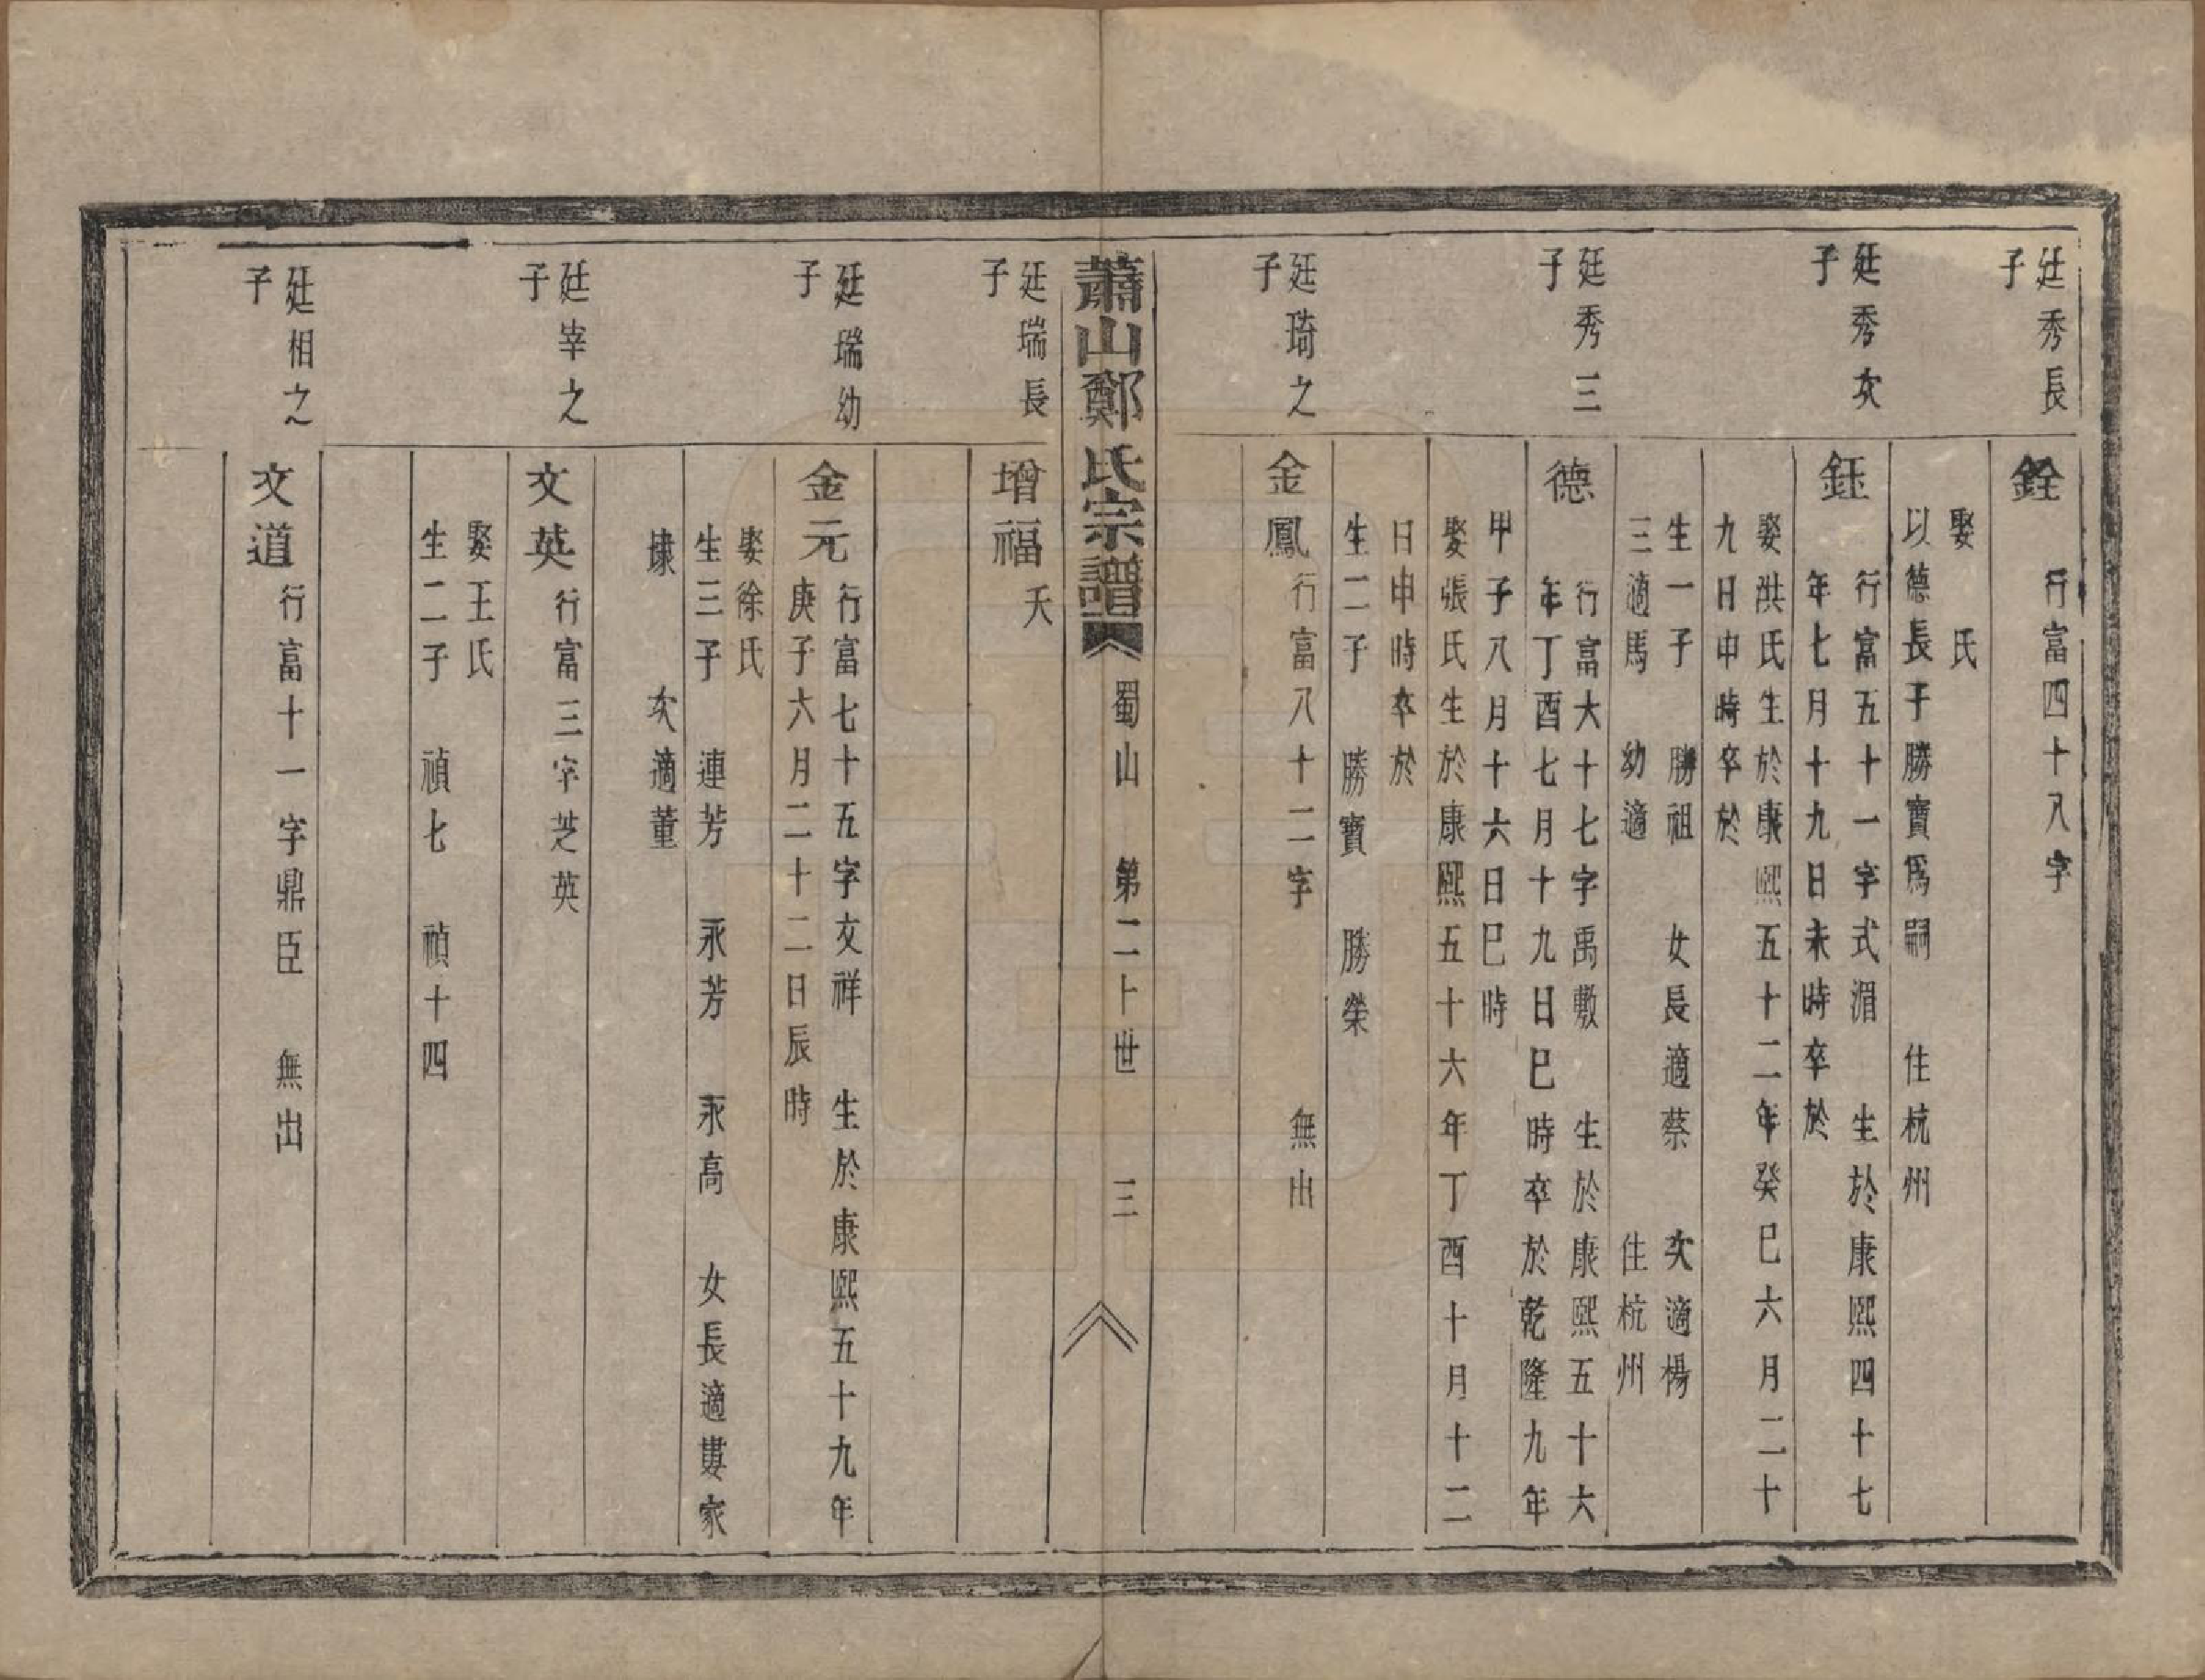 廷秀長
子
銓
行富四十八字
娶　氏
以德長子勝寶爲嗣　住杭州
廷秀次
子
鈺
行富五十一字式湄　生於康熙四十七
年七月十九日未時卒於
娶洪氏生於康熙五十二年癸巳六月二十
九日申時卒於
生一子　勝祖　女長適蔡　次適楊
三適馬　幼適　住杭州
廷秀三
子
德
行富大十七字禹敷　生於康熙五十六
年丁酉七月十九日巳時卒於乾隆九年
甲子八月十六日巳時
娶張氏生於康熙五十六年丁酉十月十二
日申時卒於
生二子　勝寶　勝榮
廷琦之
子
金鳳
行富八十二字　無出
蕭山鄭氏宗譜　蜀山　第二十世　三
廷瑞長
子
增福
夭
廷瑞幼
子
金元
行富七十五字文祥　生於康熙五十九年
庚子六月二十二日辰時
娶徐氏
生三子　連芳　永芳　永高　女長適婁家
埭　次適董
廷宰之
子
文英
行富三字芝英
娶王氏
生二子　禎七　禎十四
廷相之
子
文道
行富十一字鼎臣　無出